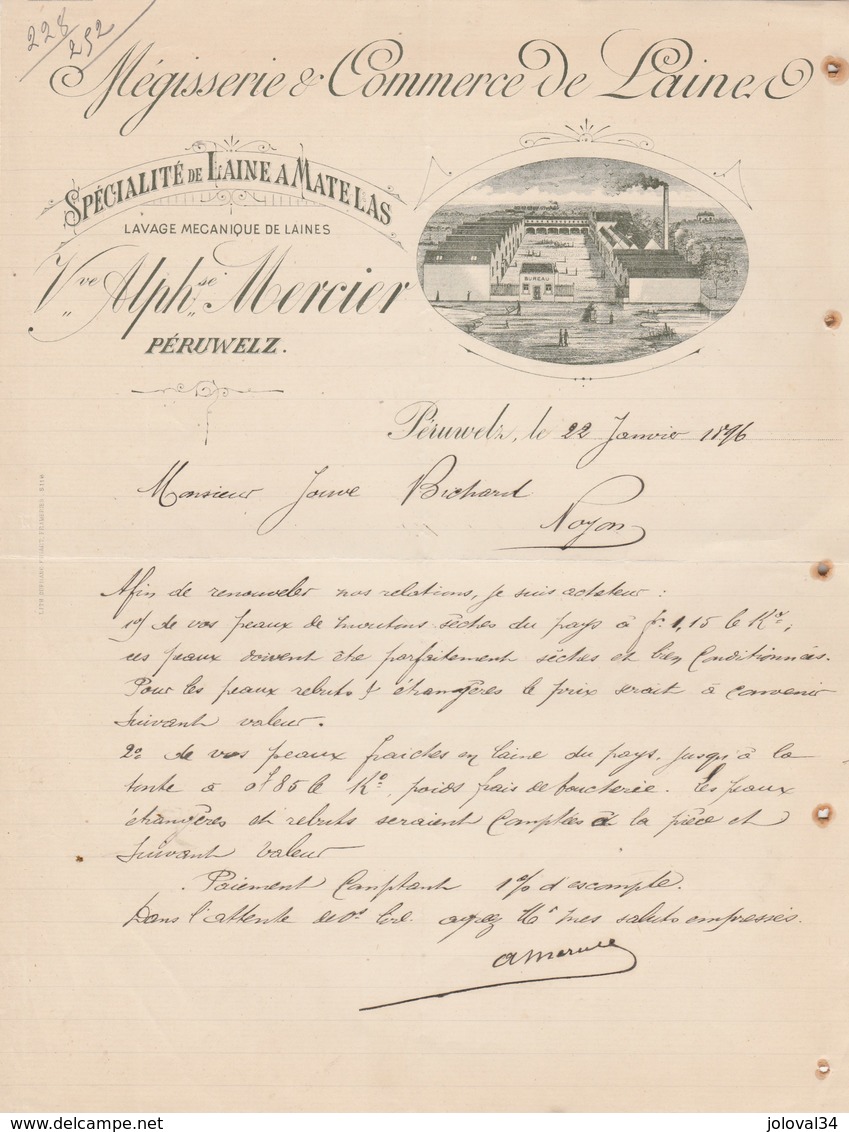 228
252
Mégisserie & Commerce de Laines
SPÉCIALITÉ DE LAINE A MATELAS
LAVAGE MECANIQUE DE LAINES
Vve Alphse Mercier
PÉRUWELZ.
BUREAU
Péruwelz, le 22 Janvier 1896
Monsieur Jouve Bichard
Noyon
Afin de renouveler nos relations, je suis acheteur :
1o) de vos peaux de moutons sèches du pays à fr. 1,15 le Ko;
ces peaux doivent être parfaitement sèches et bien conditionnées.
Pour les peaux rebuts & étrangères le prix serait à convenir
suivant valeur.
2o de vos peaux fraîches en laine du pays, jusqu'à la
tonte à 0f85 le Ko, poids frais de boucherie. Les peaux
étrangères et rebuts seraient comptées à la pièce et
suivant valeur
Paiement comptant 1% d'escompte.
Dans l'attente de agréez Mr mes saluts empressés.
AMercier
delcampe.net
joloval34